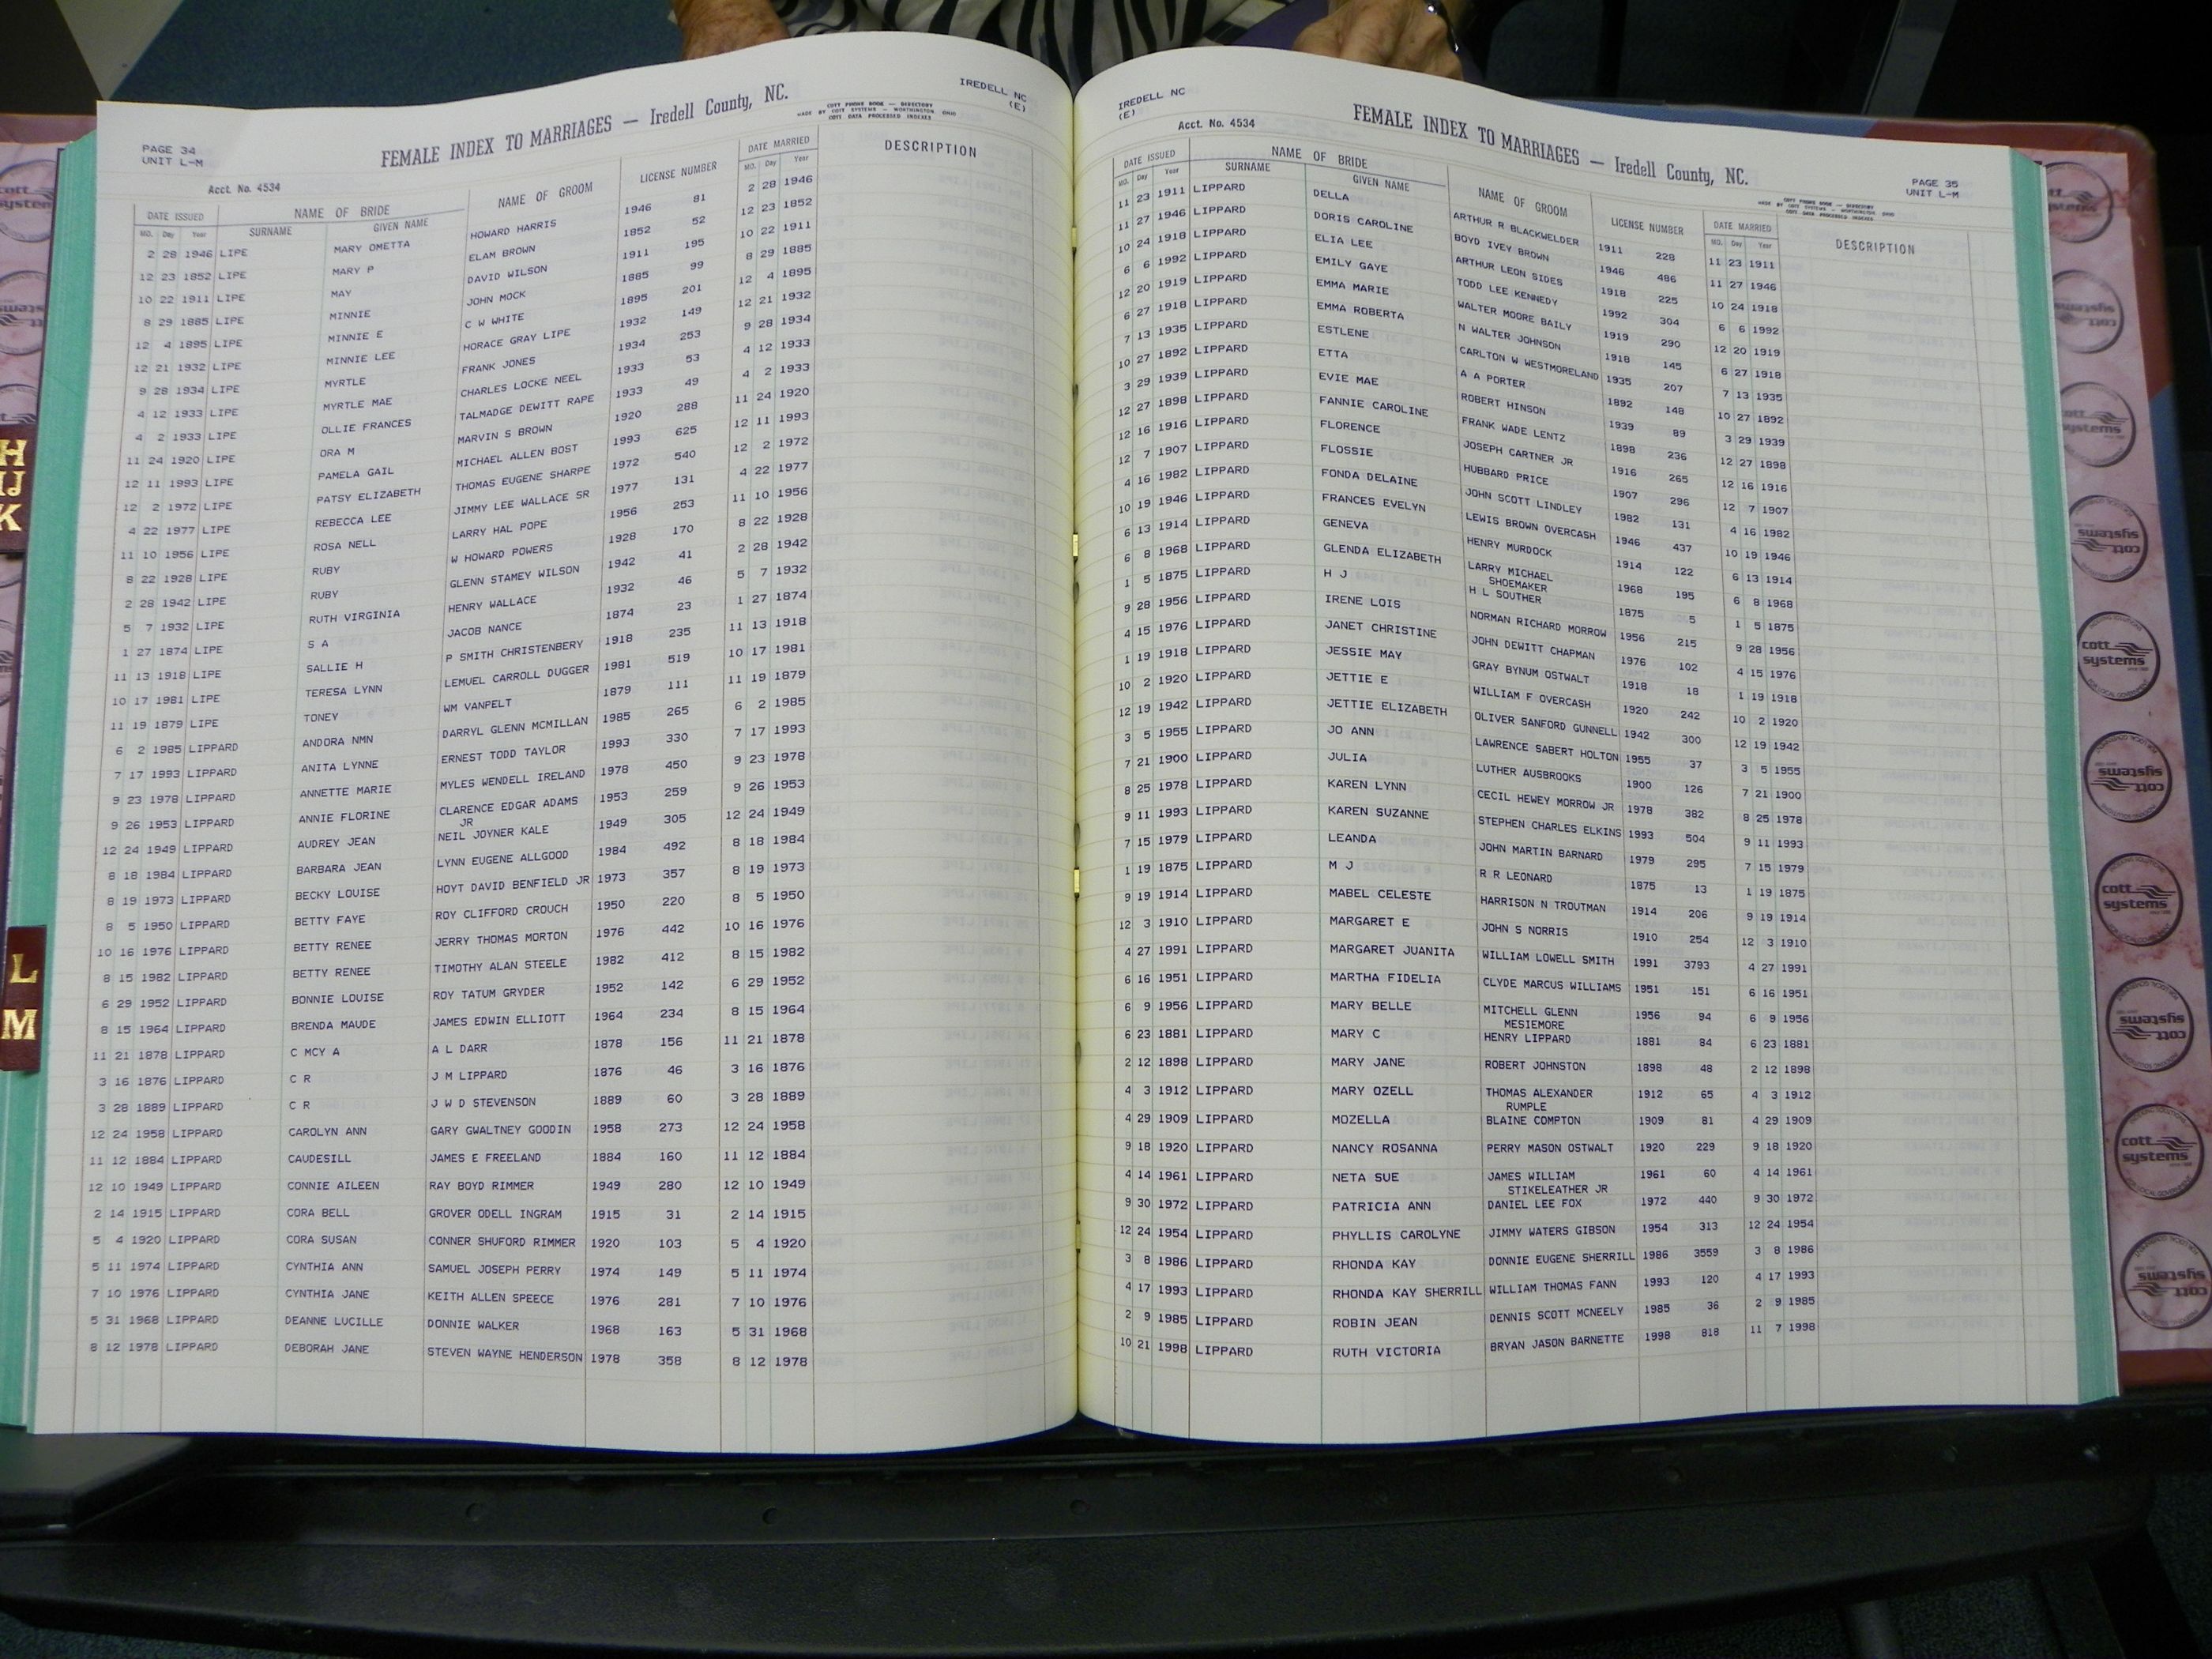 IREDELL NC
(E)
FEMALE INDEX TO MARRIAGES — Iredell County, NC.
COTT PHONE BOOK — DIRECTORY
MADE BY COTT SYSTEMS — WORTHINGTON OHIO
COTT DATA PROCESSED INDEXES
PAGE 34
UNIT L-M
Acct. No. 4534
DATE ISSUED NAME OF BRIDE NAME OF GROOM LICENSE NUMBER DATE MARRIED DESCRIPTION
MO. Day Year SURNAME GIVEN NAME MO. Day Year
2 28 1946 LIPE MARY OMETTA HOWARD HARRIS 1946 81 2 28 1946
12 23 1852 LIPE MARY P ELAM BROWN 1852 52 12 23 1852
10 22 1911 LIPE MAY DAVID WILSON 1911 195 10 22 1911
8 29 1885 LIPE MINNIE JOHN MOCK 1885 99 8 29 1885
12 4 1895 LIPE MINNIE E C W WHITE 1895 201 12 4 1895
12 21 1932 LIPE MINNIE LEE HORACE GRAY LIPE 1932 149 12 21 1932
9 28 1934 LIPE MYRTLE FRANK JONES 1934 253 9 28 1934
4 12 1933 LIPE MYRTLE MAE CHARLES LOCKE NEEL 1933 53 4 12 1933
4 2 1933 LIPE OLLIE FRANCES TALMADGE DEWITT RAPE 1933 49 4 2 1933
11 24 1920 LIPE ORA M MARVIN S BROWN 1920 288 11 24 1920
12 11 1993 LIPE PAMELA GAIL MICHAEL ALLEN BOST 1993 625 12 11 1993
12 2 1972 LIPE PATSY ELIZABETH THOMAS EUGENE SHARPE 1972 540 12 2 1972
4 22 1977 LIPE REBECCA LEE JIMMY LEE WALLACE SR 1977 131 4 22 1977
11 10 1956 LIPE ROSA NELL LARRY HAL POPE 1956 253 11 10 1956
8 22 1928 LIPE RUBY W HOWARD POWERS 1928 170 8 22 1928
2 28 1942 LIPE RUBY GLENN STAMEY WILSON 1942 41 2 28 1942
5 7 1932 LIPE RUTH VIRGINIA HENRY WALLACE 1932 46 5 7 1932
1 27 1874 LIPE S A JACOB NANCE 1874 23 1 27 1874
11 13 1918 LIPE SALLIE H P SMITH CHRISTENBERY 1918 235 11 13 1918
10 17 1981 LIPE TERESA LYNN LEMUEL CARROLL DUGGER 1981 519 10 17 1981
11 19 1879 LIPE TONEY WM VANPELT 1879 111 11 19 1879
6 2 1985 LIPPARD ANDORA NMN DARRYL GLENN MCMILLAN 1985 265 6 2 1985
7 17 1993 LIPPARD ANITA LYNNE ERNEST TODD TAYLOR 1993 330 7 17 1993
9 23 1978 LIPPARD ANNETTE MARIE MYLES WENDELL IRELAND 1978 450 9 23 1978
9 26 1953 LIPPARD ANNIE FLORINE CLARENCE EDGAR ADAMS 1953 259 9 26 1953
JR
12 24 1949 LIPPARD AUDREY JEAN NEIL JOYNER KALE 1949 305 12 24 1949
8 18 1984 LIPPARD BARBARA JEAN LYNN EUGENE ALLGOOD 1984 492 8 18 1984
8 19 1973 LIPPARD BECKY LOUISE HOYT DAVID BENFIELD JR 1973 357 8 19 1973
8 5 1950 LIPPARD BETTY FAYE ROY CLIFFORD CROUCH 1950 220 8 5 1950
10 16 1976 LIPPARD BETTY RENEE JERRY THOMAS MORTON 1976 442 10 16 1976
8 15 1982 LIPPARD BETTY RENEE TIMOTHY ALAN STEELE 1982 412 8 15 1982
6 29 1952 LIPPARD BONNIE LOUISE ROY TATUM GRYDER 1952 142 6 29 1952
8 15 1964 LIPPARD BRENDA MAUDE JAMES EDWIN ELLIOTT 1964 234 8 15 1964
11 21 1878 LIPPARD C MCY A A L DARR 1878 156 11 21 1878
3 16 1876 LIPPARD C R J M LIPPARD 1876 46 3 16 1876
3 28 1889 LIPPARD C R J W D STEVENSON 1889 60 3 28 1889
12 24 1958 LIPPARD CAROLYN ANN GARY GWALTNEY GOODIN 1958 273 12 24 1958
11 12 1884 LIPPARD CAUDESILL JAMES E FREELAND 1884 160 11 12 1884
12 10 1949 LIPPARD CONNIE AILEEN RAY BOYD RIMMER 1949 280 12 10 1949
2 14 1915 LIPPARD CORA BELL GROVER ODELL INGRAM 1915 31 2 14 1915
5 4 1920 LIPPARD CORA SUSAN CONNER SHUFORD RIMMER 1920 103 5 4 1920
5 11 1974 LIPPARD CYNTHIA ANN SAMUEL JOSEPH PERRY 1974 149 5 11 1974
7 10 1976 LIPPARD CYNTHIA JANE KEITH ALLEN SPEECE 1976 281 7 10 1976
5 31 1968 LIPPARD DEANNE LUCILLE DONNIE WALKER 1968 163 5 31 1968
8 12 1978 LIPPARD DEBORAH JANE STEVEN WAYNE HENDERSON 1978 358 8 12 1978
IREDELL NC
(E)
Acct. No. 4534
FEMALE INDEX TO MARRIAGES — Iredell County, NC.
COTT PHONE BOOK — DIRECTORY
MADE BY COTT SYSTEMS — WORTHINGTON OHIO
COTT DATA PROCESSED INDEXES
PAGE 35
UNIT L-M
DATE ISSUED NAME OF BRIDE NAME OF GROOM LICENSE NUMBER DATE MARRIED DESCRIPTION
MO. Day Year SURNAME GIVEN NAME MO. Day Year
11 23 1911 LIPPARD DELLA ARTHUR R BLACKWELDER 1911 228 11 23 1911
11 27 1946 LIPPARD DORIS CAROLINE BOYD IVEY BROWN 1946 486 11 27 1946
10 24 1918 LIPPARD ELIA LEE ARTHUR LEON SIDES 1918 225 10 24 1918
6 6 1992 LIPPARD EMILY GAYE TODD LEE KENNEDY 1992 304 6 6 1992
12 20 1919 LIPPARD EMMA MARIE WALTER MOORE BAILY 1919 290 12 20 1919
6 27 1918 LIPPARD EMMA ROBERTA N WALTER JOHNSON 1918 145 6 27 1918
7 13 1935 LIPPARD ESTLENE CARLTON W WESTMORELAND 1935 207 7 13 1935
10 27 1892 LIPPARD ETTA A A PORTER 1892 148 10 27 1892
3 29 1939 LIPPARD EVIE MAE ROBERT HINSON 1939 89 3 29 1939
12 27 1898 LIPPARD FANNIE CAROLINE FRANK WADE LENTZ 1898 236 12 27 1898
12 16 1916 LIPPARD FLORENCE JOSEPH CARTNER JR 1916 265 12 16 1916
12 7 1907 LIPPARD FLOSSIE HUBBARD PRICE 1907 296 12 7 1907
4 16 1982 LIPPARD FONDA DELAINE JOHN SCOTT LINDLEY 1982 131 4 16 1982
10 19 1946 LIPPARD FRANCES EVELYN LEWIS BROWN OVERCASH 1946 437 10 19 1946
6 13 1914 LIPPARD GENEVA HENRY MURDOCK 1914 122 6 13 1914
6 8 1968 LIPPARD GLENDA ELIZABETH LARRY MICHAEL 1968 195 6 8 1968
SHOEMAKER
1 5 1875 LIPPARD H J H L SOUTHER 1875 5 1 5 1875
9 28 1956 LIPPARD IRENE LOIS NORMAN RICHARD MORROW 1956 215 9 28 1956
4 15 1976 LIPPARD JANET CHRISTINE JOHN DEWITT CHAPMAN 1976 102 4 15 1976
1 19 1918 LIPPARD JESSIE MAY GRAY BYNUM OSTWALT 1918 18 1 19 1918
10 2 1920 LIPPARD JETTIE E WILLIAM F OVERCASH 1920 242 10 2 1920
12 19 1942 LIPPARD JETTIE ELIZABETH OLIVER SANFORD GUNNELL 1942 300 12 19 1942
3 5 1955 LIPPARD JO ANN LAWRENCE SABERT HOLTON 1955 37 3 5 1955
7 21 1900 LIPPARD JULIA LUTHER AUSBROOKS 1900 126 7 21 1900
8 25 1978 LIPPARD KAREN LYNN CECIL HEWEY MORROW JR 1978 382 8 25 1978
9 11 1993 LIPPARD KAREN SUZANNE STEPHEN CHARLES ELKINS 1993 504 9 11 1993
7 15 1979 LIPPARD LEANDA JOHN MARTIN BARNARD 1979 295 7 15 1979
1 19 1875 LIPPARD M J R R LEONARD 1875 13 1 19 1875
9 19 1914 LIPPARD MABEL CELESTE HARRISON N TROUTMAN 1914 206 9 19 1914
12 3 1910 LIPPARD MARGARET E JOHN S NORRIS 1910 254 12 3 1910
4 27 1991 LIPPARD MARGARET JUANITA WILLIAM LOWELL SMITH 1991 3793 4 27 1991
6 16 1951 LIPPARD MARTHA FIDELIA CLYDE MARCUS WILLIAMS 1951 151 6 16 1951
6 9 1956 LIPPARD MARY BELLE MITCHELL GLENN 1956 94 6 9 1956
MESIEMORE
6 23 1881 LIPPARD MARY C HENRY LIPPARD 1881 84 6 23 1881
2 12 1898 LIPPARD MARY JANE ROBERT JOHNSTON 1898 48 2 12 1898
4 3 1912 LIPPARD MARY OZELL THOMAS ALEXANDER 1912 65 4 3 1912
RUMPLE
4 29 1909 LIPPARD MOZELLA BLAINE COMPTON 1909 81 4 29 1909
9 18 1920 LIPPARD NANCY ROSANNA PERRY MASON OSTWALT 1920 229 9 18 1920
4 14 1961 LIPPARD NETA SUE JAMES WILLIAM 1961 60 4 14 1961
STIKELEATHER JR
9 30 1972 LIPPARD PATRICIA ANN DANIEL LEE FOX 1972 440 9 30 1972
12 24 1954 LIPPARD PHYLLIS CAROLYNE JIMMY WATERS GIBSON 1954 313 12 24 1954
3 8 1986 LIPPARD RHONDA KAY DONNIE EUGENE SHERRILL 1986 3559 3 8 1986
4 17 1993 LIPPARD RHONDA KAY SHERRILL WILLIAM THOMAS FANN 1993 120 4 17 1993
2 9 1985 LIPPARD ROBIN JEAN DENNIS SCOTT MCNEELY 1985 36 2 9 1985
10 21 1998 LIPPARD RUTH VICTORIA BRYAN JASON BARNETTE 1998 818 11 7 1998
H
IJ
K
L
M
cott
systems
cott
systems
cott
systems
FOR LOCAL GOVERNMENT
cott
systems